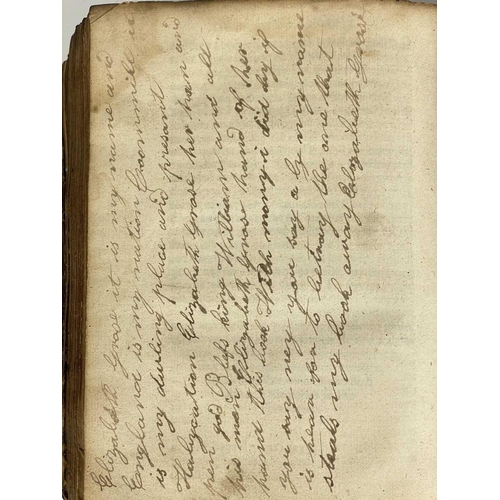 Elizabeth Grose it is my name and
England is my nation Goonmill is
is my dweling place and presant
Habycution Elizabeth Grose her han and
pen god Bless king William and all
his men Elizabeth Grose hand of her
paund this book With mony i did by if
you say ney you say a ly my name
is hear for to betray the one that
steals my book away Elizabeth Grose